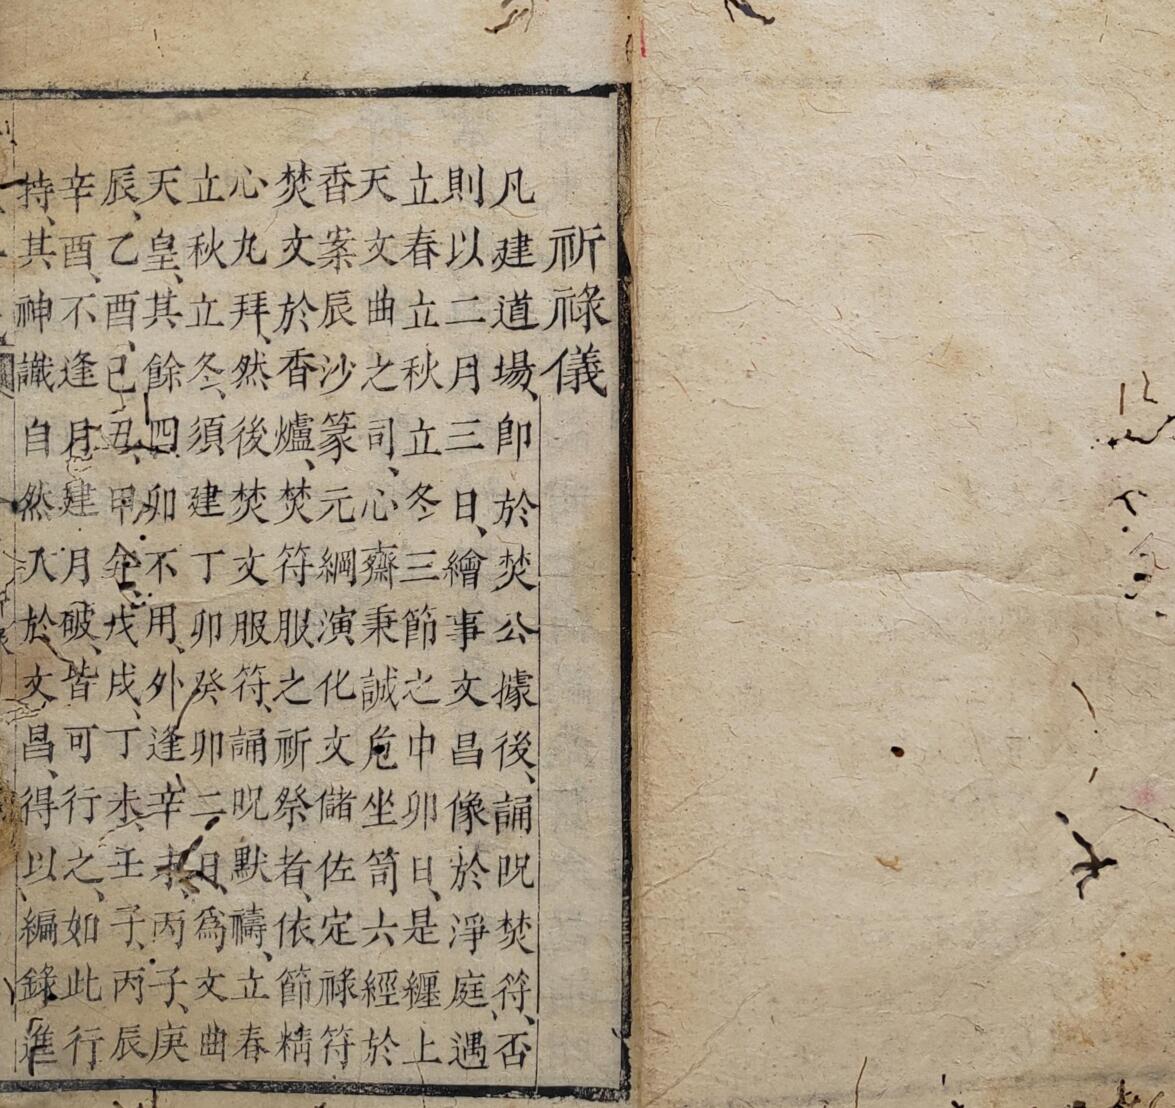 祈祿儀
凡建道場、卽於焚公據後、誦呪焚符、否
則以二月三日、繪事文昌像於淨庭、遇
立春立秋立冬三節之中卯日、是纏上
天文曲之司、心齋秉誠危坐笥六經於
香案辰沙篆元綱演化文儲佐定祿符
焚文於香爐、焚符服之祈祭者、依節精
心九拜、然後焚文服符、誦呪默禱、立春
立秋立冬、須建丁卯癸卯二日、爲文曲
天皇、其餘四卯不用、外逢辛未丙子、庚
辰、乙酉、己丑、甲午、戊戌、丁未、壬子、丙辰
辛酉、不逢月建月破、皆可行之、如此行
持、其神讖自然入於文昌、得以編錄進